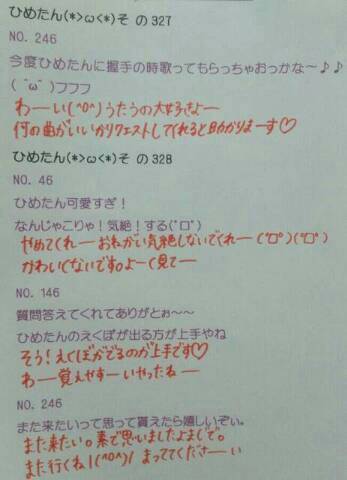 ひめたん(*>ω<*)そ の327
NO. 246
今度ひめたんに握手の時歌ってもらっちゃおっかな～♪♪
( ˘ω˘ )フフフ
わーい(^o^)うたうの大好きよー
何の曲がいいかリクエストしてくれると助かりまーす♡
ひめたん(*>ω<*)そ の328
NO. 46
ひめたん可愛すぎ！
なんじゃこりゃ！気絶！する(ﾟロﾟ)
やめてくれー おねがい気絶しないでくれー (ﾟロﾟ)(ﾟロﾟ)
かわいくないです。よーく見てー
NO. 146
質問答えてくれてありがとぉ～～
ひめたんのえくぼが出る方が上手やね
そう！えくぼがでるのが上手です♡
わー覚えやすーいやったねー
NO. 246
また来たいって思って貰えたら嬉しいぞぃ。
また来たい。素で思いましたよまじで。
また行くね!(^o^)/ まっててくださーい